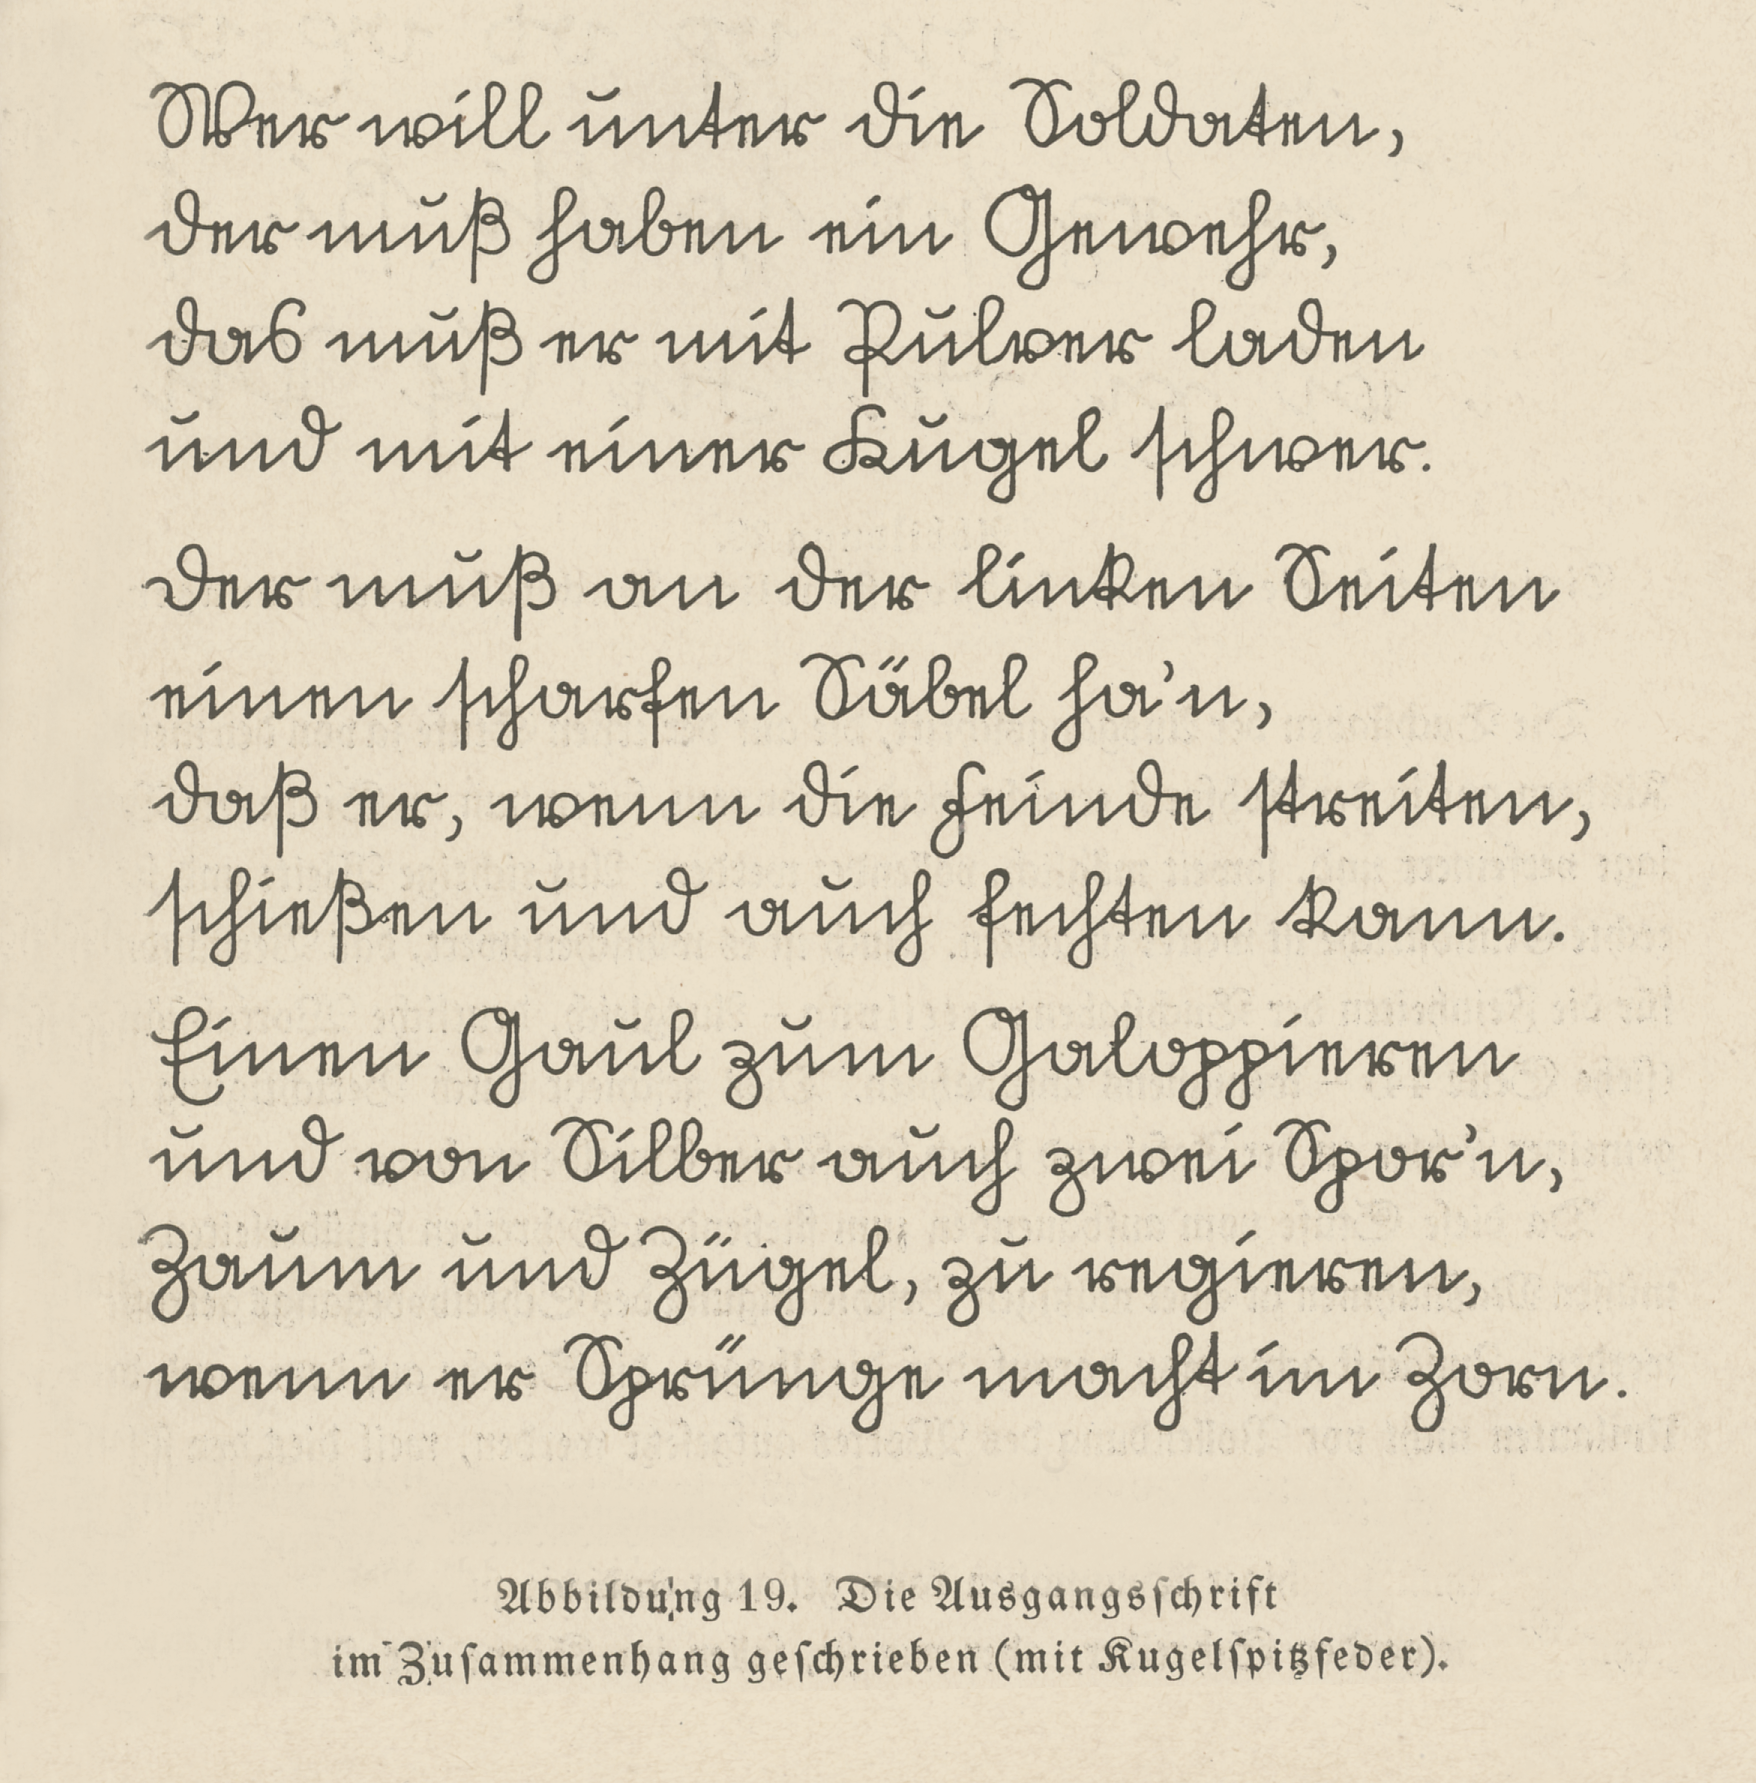 Wer will unter die Soldaten,
der muß haben ein Gewehr,
das muß er mit Pulver laden
und mit einer Kugel schwer.
Der muß an der linken Seiten
einen scharfen Säbel ha'n,
daß er, wenn die Feinde streiten,
schießen und auch fechten kann.
Einen Gaul zum Galoppieren
und von Silber auch zwei Spor'n,
Zaum und Zügel, zu regieren,
wenn er Sprünge macht im Zorn.
Abbildung 19. Die Ausgangsſchrift
im Zuſammenhang geſchrieben (mit Kugelſpitzfeder).